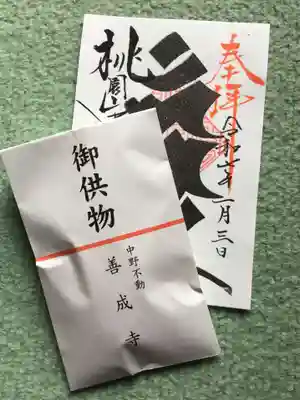 奉拝
令和七年一月三日
桃園山
御供物
中野不動
善成寺